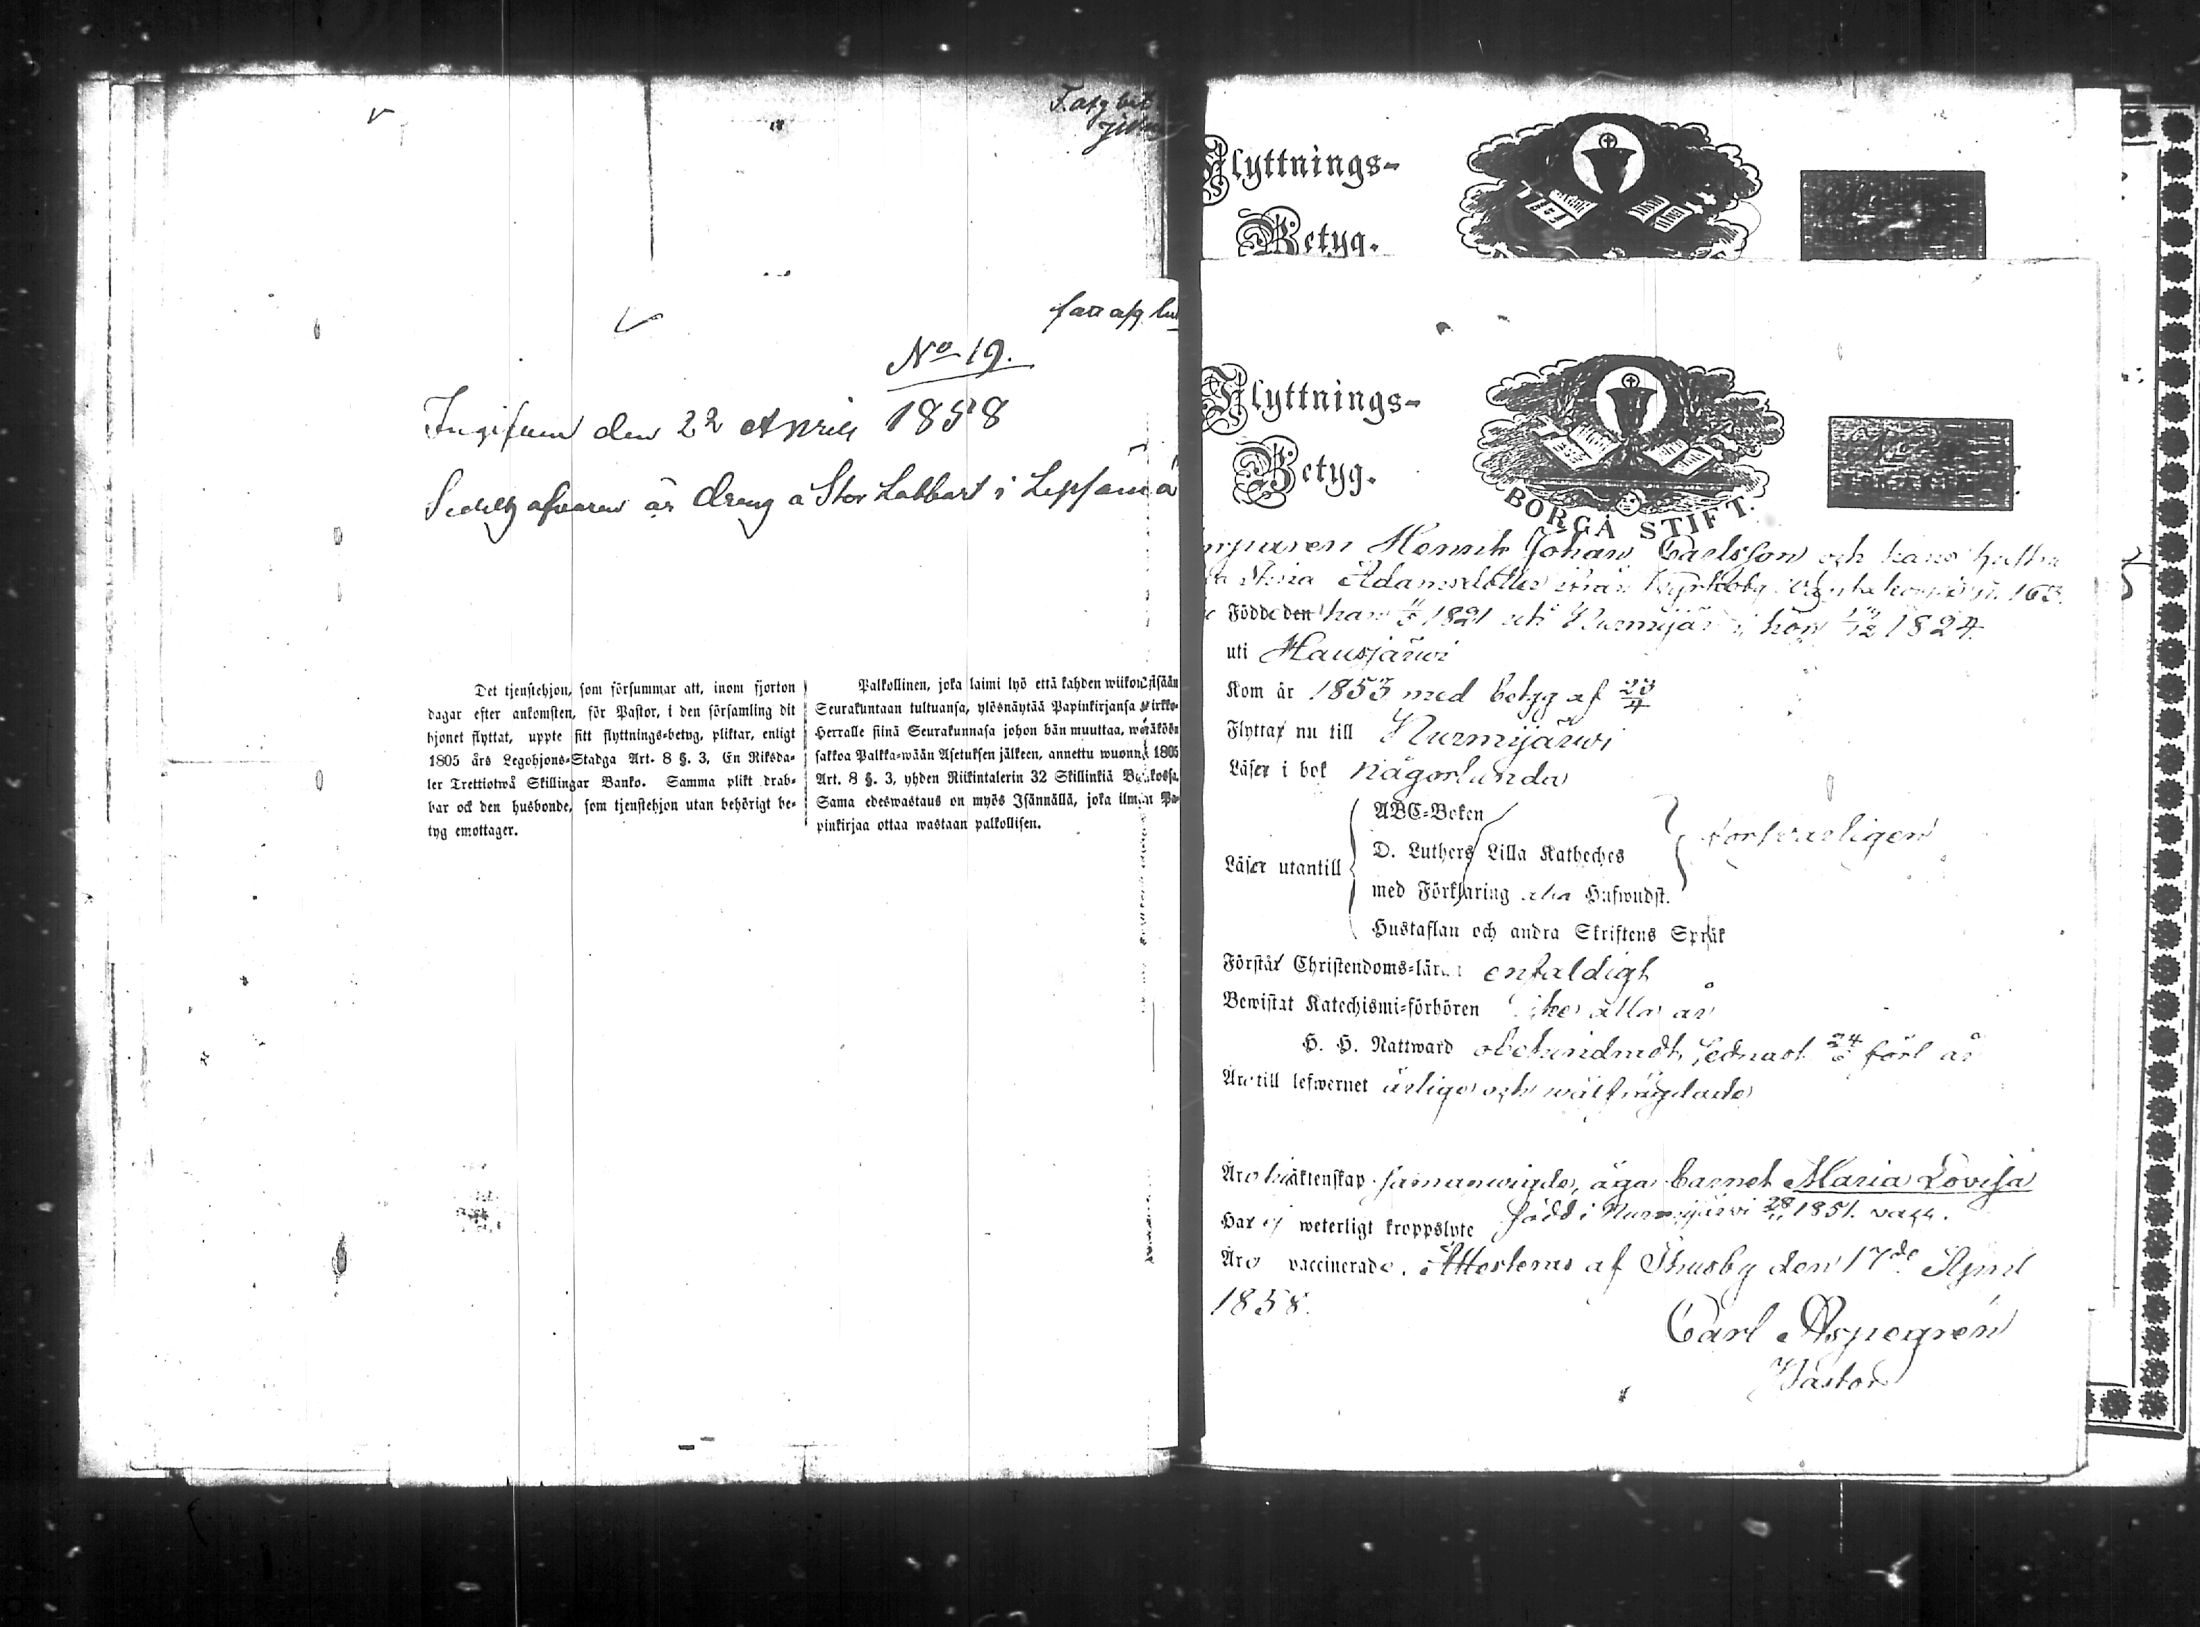 No 19.
Ingifven den 22 April 1858
Sedelhafvaren är dreng å Stor Labbart i Lepsämä
Det tjenstehjon, som försummar att, inom fjorton
dagar efter ankomsten, för Pastor, i den församling dit
hjonet flyttat, uppte sitt flyttnings-betyg, pliktar, enligt
1805 års Legohjons-Stadga Art. 8 §. 3, En Riksda-
ler Trettiotwå Skillingar Banko. Samma plikt drab-
bar ock den husbonde, som tjenstehjon utan behörigt be-
tyg emottager.
Palkollinen, joka laimi lyö että kahden wiikon sisään
Seurakuntaan tultuansa, ylösnäytää Papinkirjansa Kirkko-
Herralle siinä Seurakunnasa johon hän muuttaa, wetäköön
sakkoa Palkka-wään Asetuksen jälkeen, annettu wuonna 1805
Art. 8 §. 3, yhden Riikintalerin 32 Skillinkiä Bankossa.
Sama edeswastaus on myös Isännällä, joka ilman Pa-
pinkirjaa ottaa wastaan palkollisen.
Flyttnings-
Betyg.
Flyttnings-
Betyg.
BORGÅ STIFT.
Henrik Johan Carlsson och hans hustru
Stina Adamsdotter från Kyrkoby
Födde den han 1821 uti Nurmijärvi, hon 1824
uti Hausjärwi
Kom år 1853 med betyg af 23/4
Flyttar nu till Nurmijärwi
Läser i bok någorlunda
Läser utantill
ABC-Boken
D. Luthers Lilla Katheches
med Förklaring Hufwudst.
Hustaflan och andra Skriftens Språk
försvarligen
Förstår Christendoms-läran enfaldigt
Bewistat Katechismi-förhören icke alla år
H. H. Nattward obehindradt, sednast förl år
Äro till lefwernet ärliga och wälfrägdade
Äro i äktenskap sammanwigde, äga barnet Maria Lovisa
född i Nurmijärwi 1851. vacc.
Har ej weterligt kroppslyte
Äro vaccinerade. Attesteras af Thusby den 17de April
1858.
Carl Aspegrén
Pastor